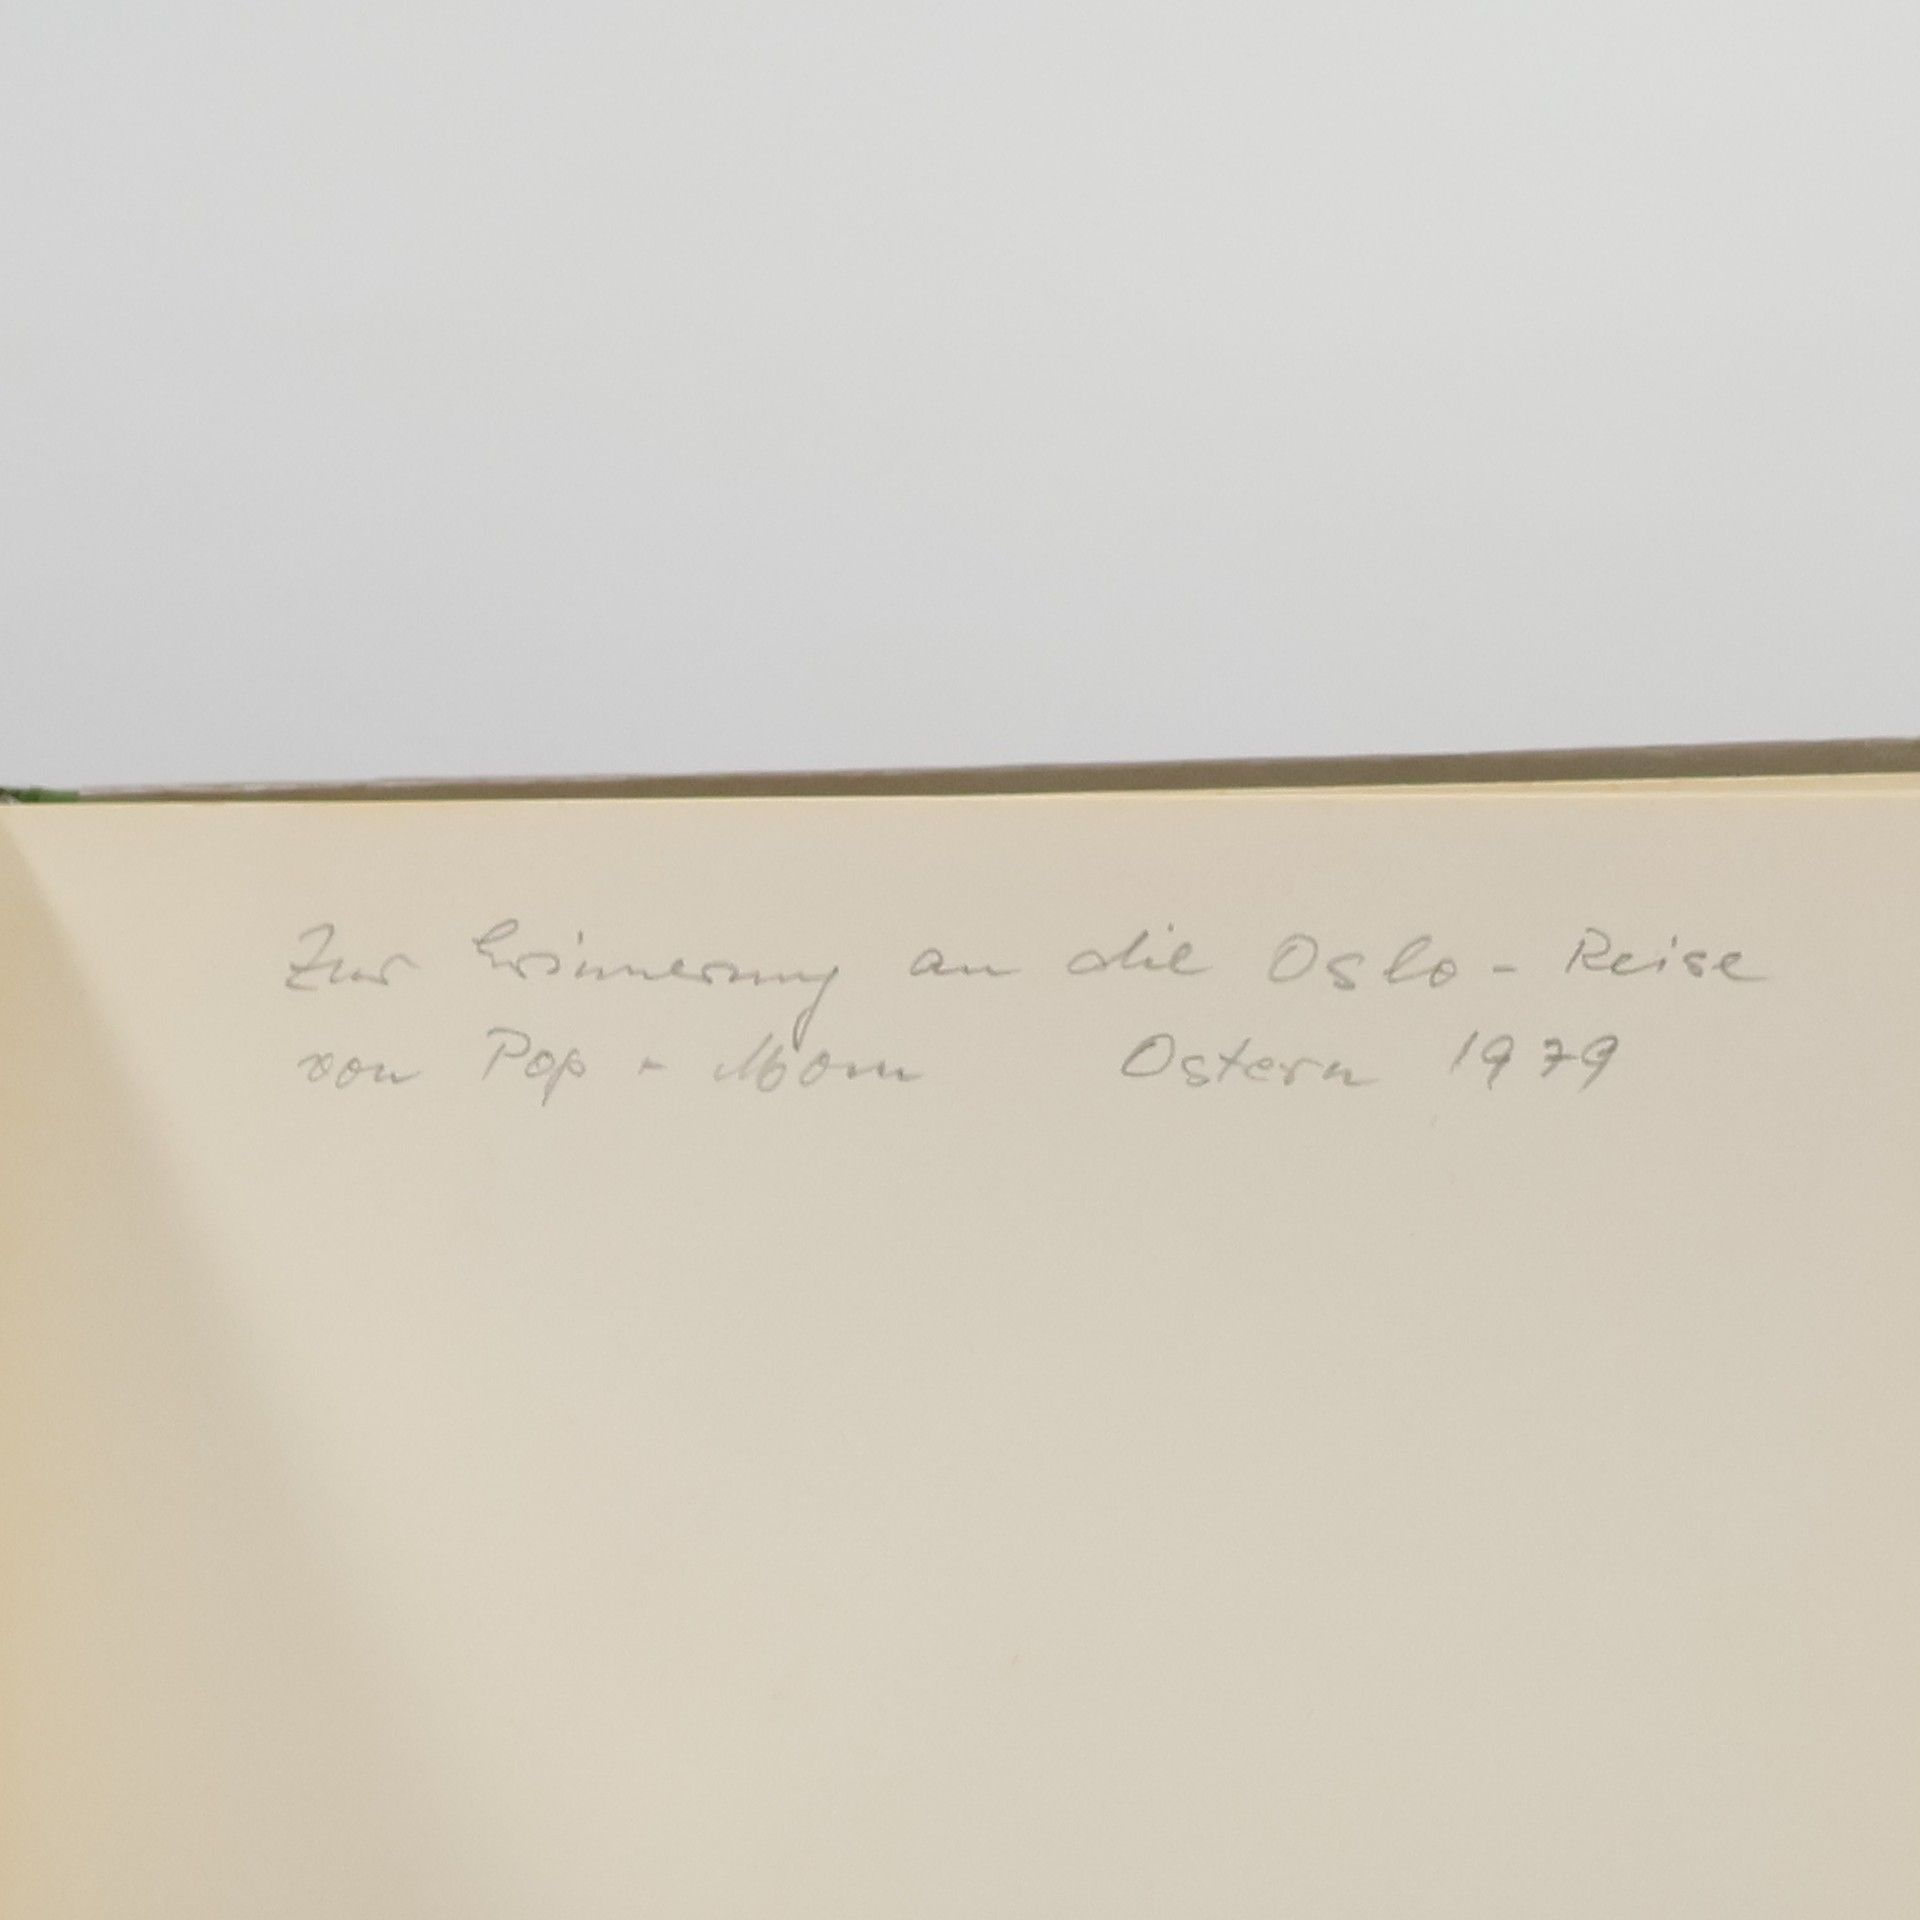 Zur Erinnerung an die Oslo - Reise
von Pop + Mom Ostern 1979